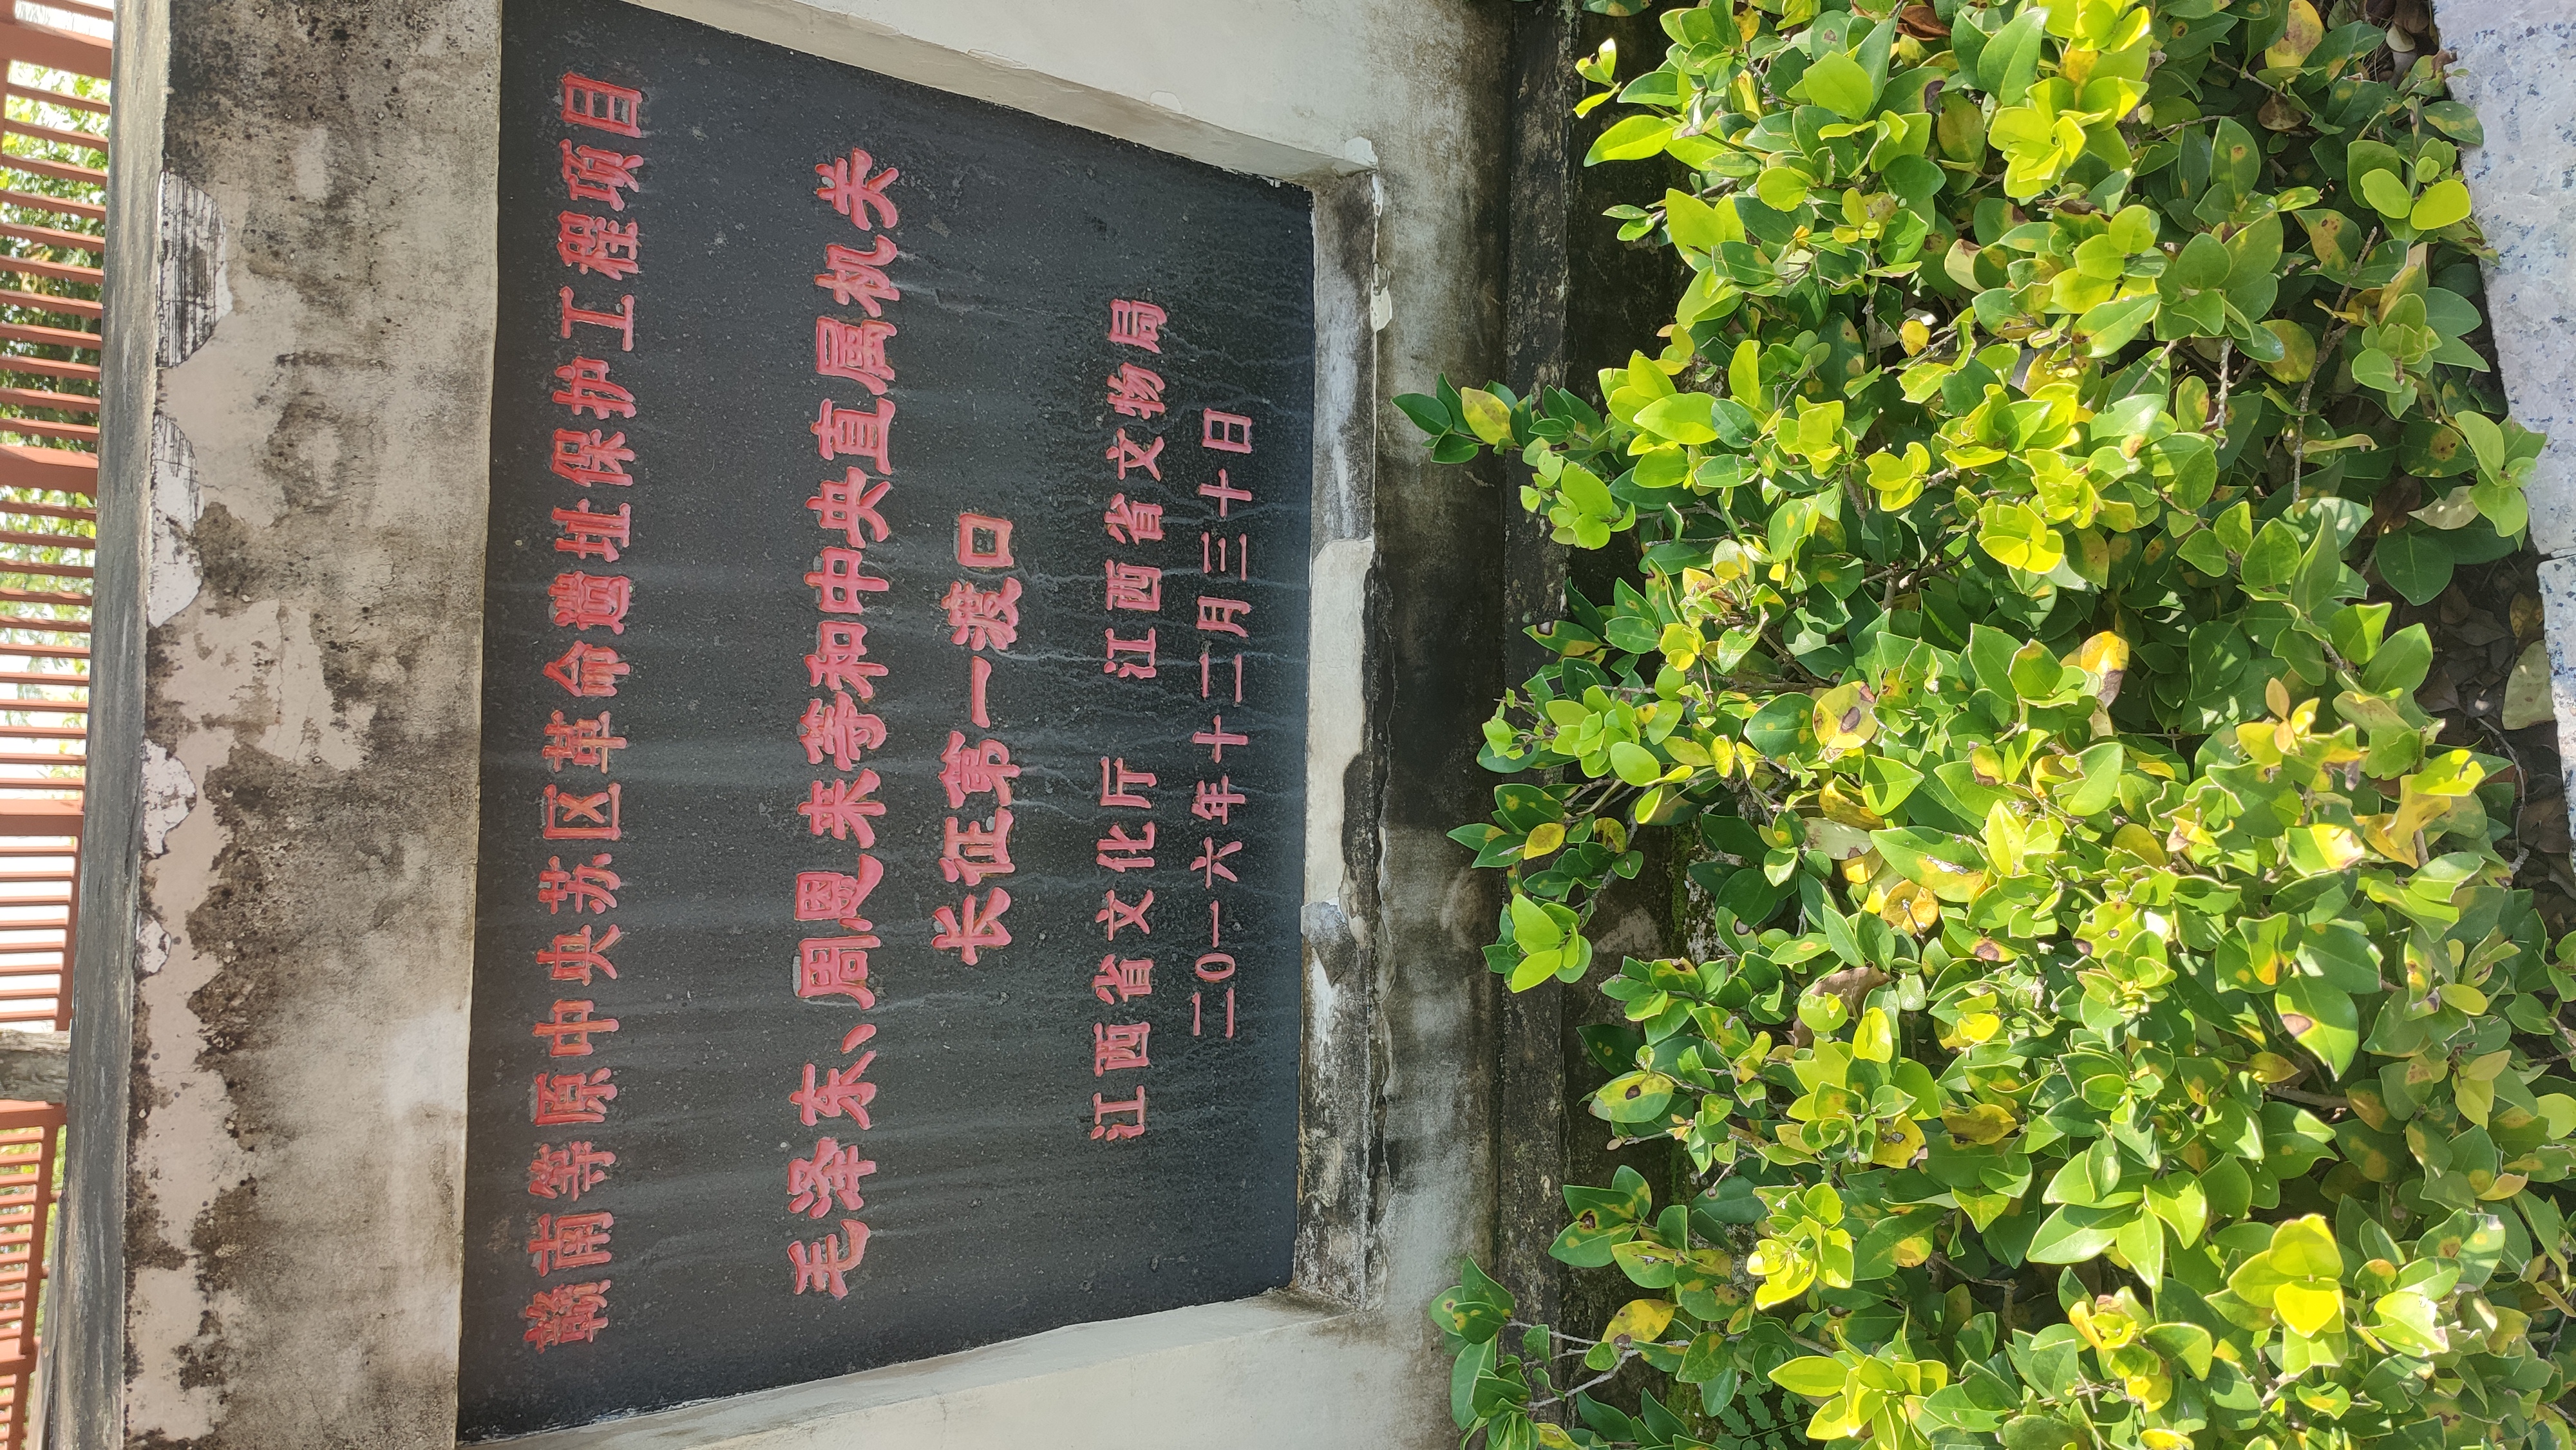 赣南等原中央苏区革命遗址保护工程项目
毛泽东、周恩来等和中央直属机关
长征第一渡口
江西省文化厅 江西省文物局
二0一六年十二月三十日